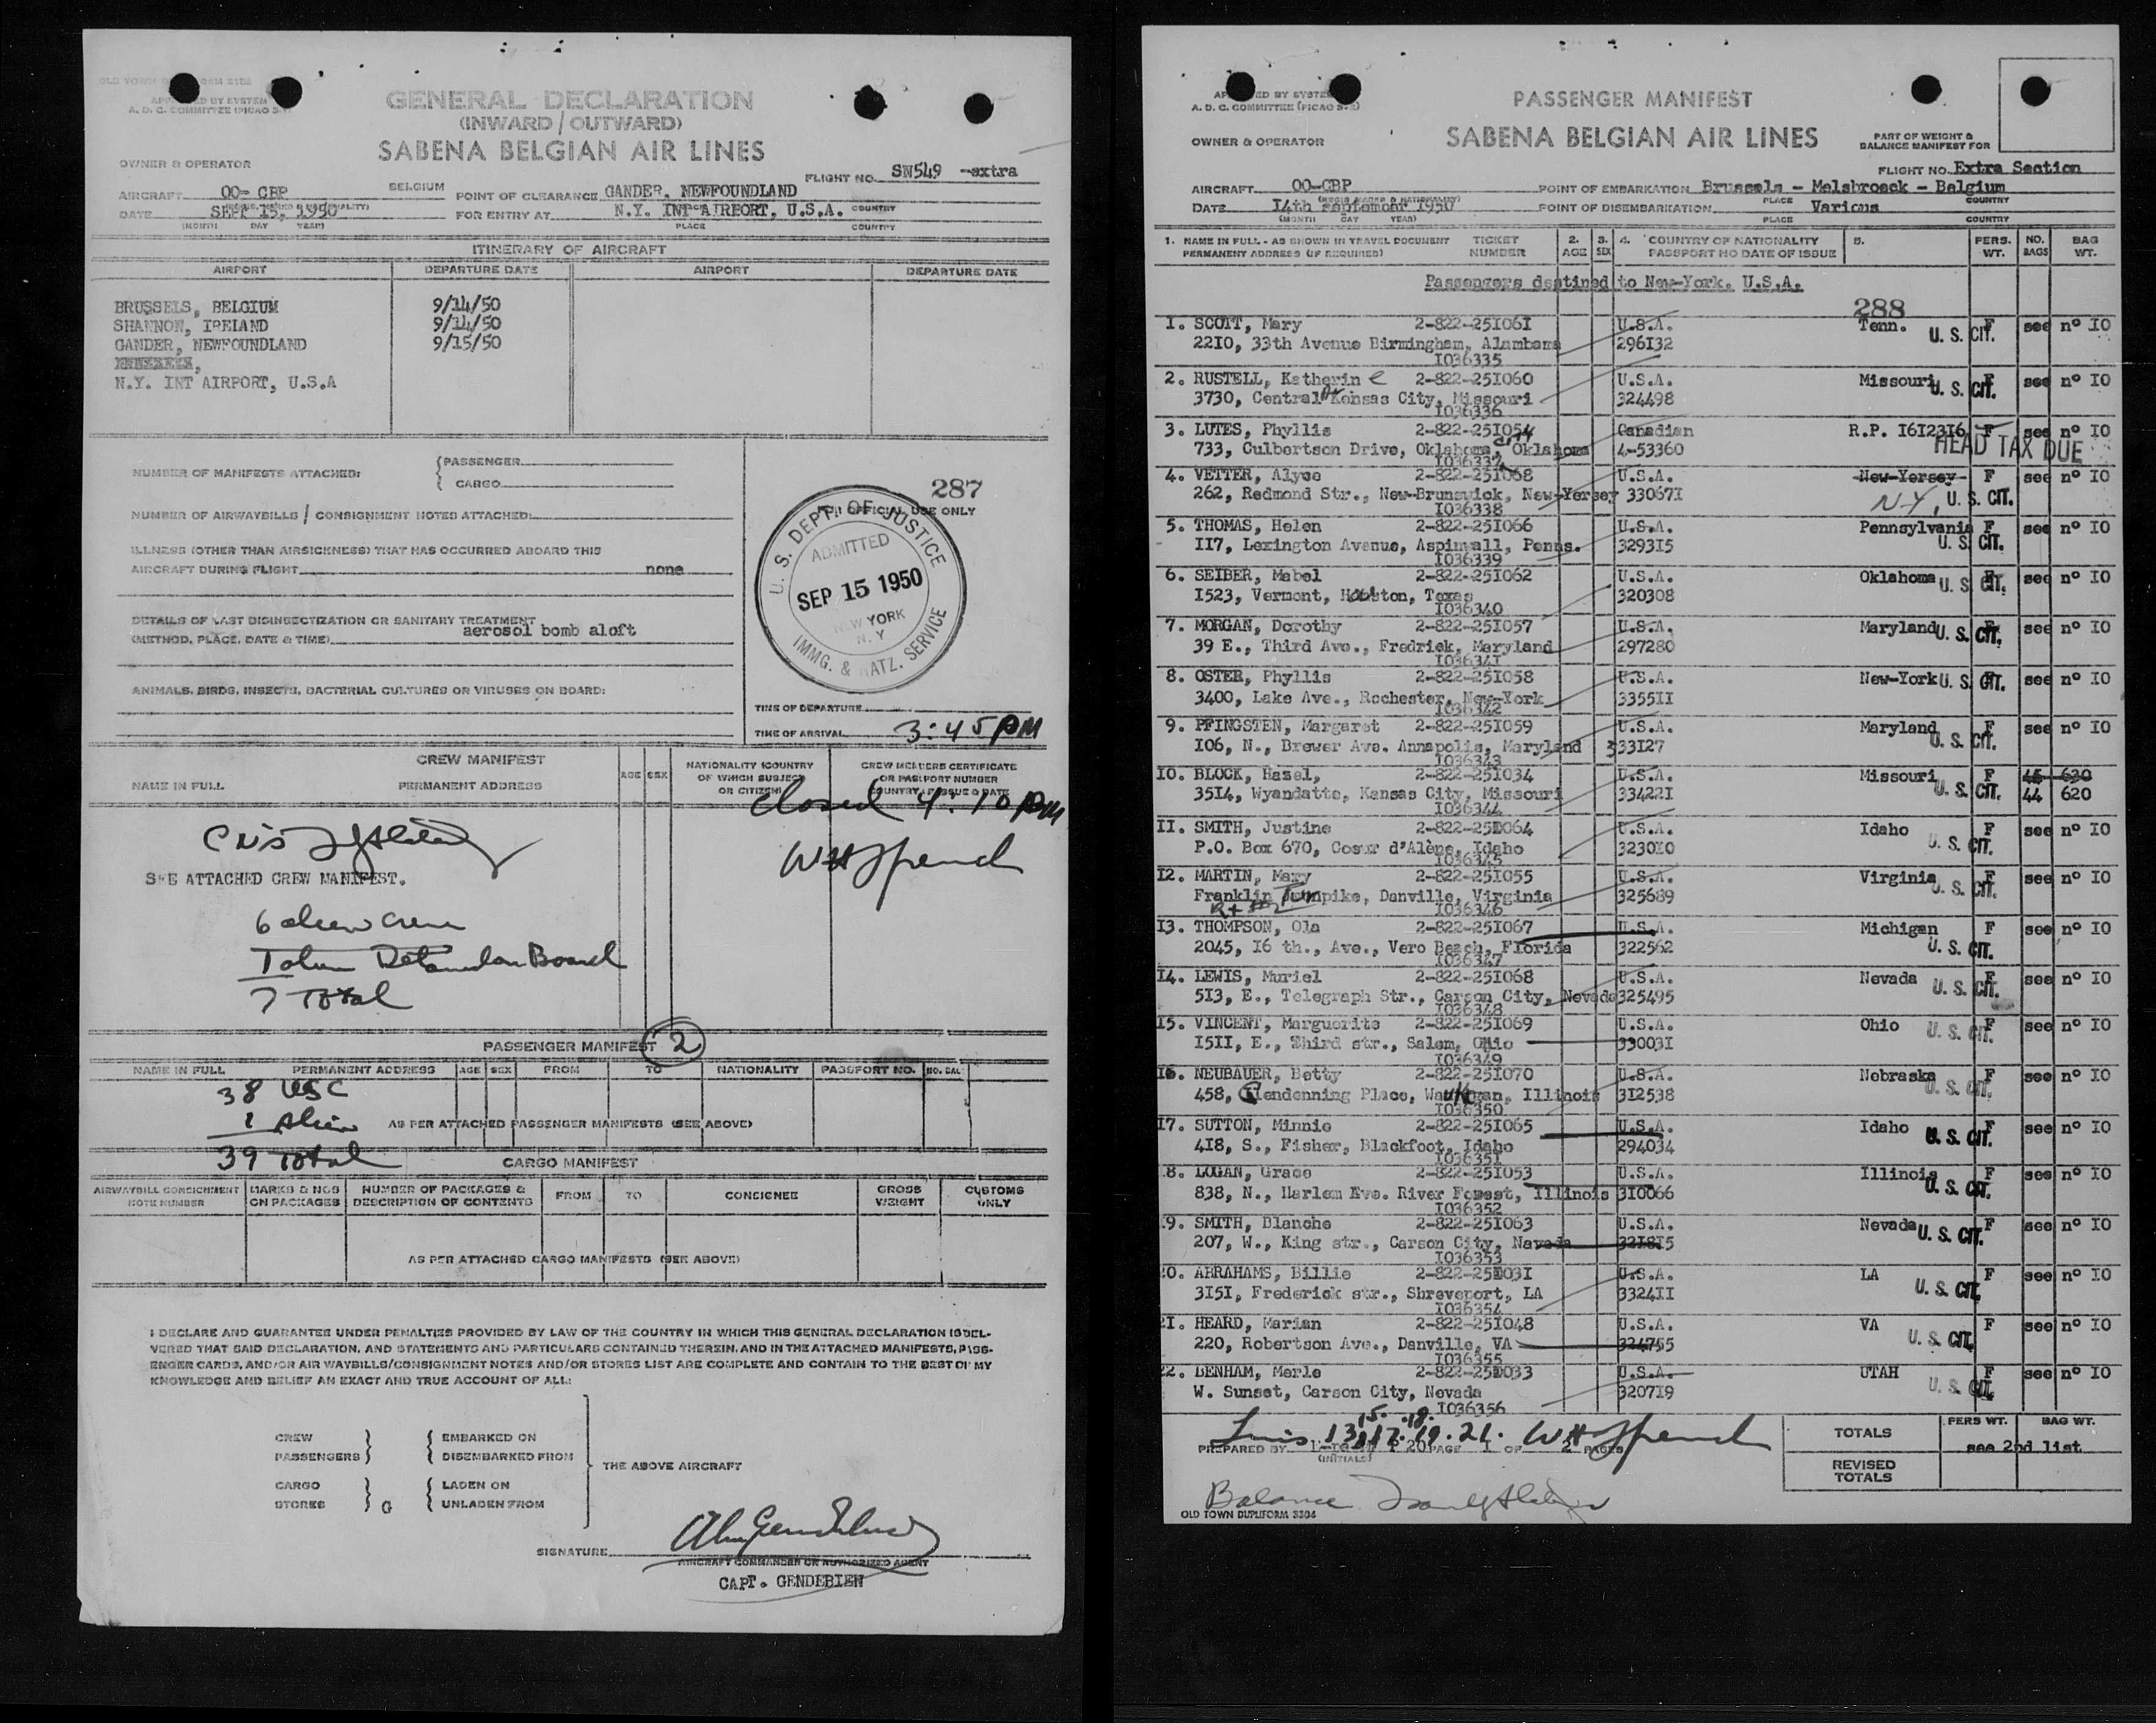 GENERAL DECLARATION
(INWARD / OUTWARD)
SABENA BELGIAN AIR LINES
A. D. C. COMMITTEE (PICAO
OWNER & OPERATOR
FLIGHT NO. SN549 -extra
AIRCRAFT OO-CBP BELGIUM POINT OF CLEARANCE GANDER, NEWFOUNDLAND
DATE SEPT 15, 1950 FOR ENTRY AT N.Y. INT AIRPORT, U.S.A. COUNTRY
(MONTH DAY YEAR) PLACE COUNTRY
ITINERARY OF AIRCRAFT
AIRPORT DEPARTURE DATE AIRPORT DEPARTURE DATE
BRUSSELS, BELGIUM 9/14/50
SHANNON, IRELAND 9/14/50
GANDER, NEWFOUNDLAND 9/15/50
N.Y. INT AIRPORT, U.S.A
NUMBER OF MANIFESTS ATTACHED: PASSENGER
CARGO
287
NUMBER OF AIRWAYBILLS / CONSIGNMENT NOTES ATTACHED:
OFFICIAL USE ONLY
ILLNESS (OTHER THAN AIRSICKNESS) THAT HAS OCCURRED ABOARD THIS
AIRCRAFT DURING FLIGHT none
U. S. DEPT. OF JUSTICE
ADMITTED
SEP 15 1950
NEW YORK
N. Y
IMMG. & NATZ. SERVICE
DETAILS OF LAST DISINSECTIZATION OR SANITARY TREATMENT
(METHOD, PLACE, DATE & TIME) aerosol bomb aloft
ANIMALS, BIRDS, INSECTS, BACTERIAL CULTURES OR VIRUSES ON BOARD:
TIME OF DEPARTURE
TIME OF ARRIVAL 3:45 PM
CREW MANIFEST
NAME IN FULL PERMANENT ADDRESS AGE SEX NATIONALITY (COUNTRY OF WHICH SUBJECT OR CITIZEN) CREW MEMBERS CERTIFICATE OR PASSPORT NUMBER COUNTRY OF ISSUE & DATE
closed 4:10 PM
SEE ATTACHED CREW MANIFEST.
6 alien crew
7 Total
PASSENGER MANIFEST 2
NAME IN FULL PERMANENT ADDRESS AGE SEX FROM TO NATIONALITY PASSPORT NO. NO. BAG
38 USC
1 Alien AS PER ATTACHED PASSENGER MANIFESTS (SEE ABOVE)
39 Total
CARGO MANIFEST
AIRWAYBILL CONSIGNMENT NOTE NUMBER MARKS & NOS ON PACKAGES NUMBER OF PACKAGES & DESCRIPTION OF CONTENTS FROM TO CONSIGNEE GROSS WEIGHT CUSTOMS ONLY
AS PER ATTACHED CARGO MANIFESTS (SEE ABOVE)
I DECLARE AND GUARANTEE UNDER PENALTIES PROVIDED BY LAW OF THE COUNTRY IN WHICH THIS GENERAL DECLARATION IS DEL-
VERED THAT SAID DECLARATION, AND STATEMENTS AND PARTICULARS CONTAINED THEREIN, AND IN THE ATTACHED MANIFESTS, PASS-
ENGER CARDS, AND/OR AIR WAYBILLS/CONSIGNMENT NOTES AND/OR STORES LIST ARE COMPLETE AND CONTAIN TO THE BEST OF MY
KNOWLEDGE AND BELIEF AN EXACT AND TRUE ACCOUNT OF ALL:
CREW EMBARKED ON
PASSENGERS DISEMBARKED FROM
THE ABOVE AIRCRAFT
CARGO LADEN ON
STORES G UNLADEN FROM
SIGNATURE
AIRCRAFT COMMANDER OR AUTHORIZED AGENT
CAPT. GENDEBIEN
A. D. C. COMMITTEE (PICAO
PASSENGER MANIFEST
OWNER & OPERATOR SABENA BELGIAN AIR LINES
PART OF WEIGHT & BALANCE MANIFEST FOR
FLIGHT NO. Extra Section
AIRCRAFT OO-CBP POINT OF EMBARKATION Brussels - Melsbroeck - Belgium
DATE 14th september 1950 POINT OF DISEMBARKATION Various
(MONTH DAY YEAR) PLACE COUNTRY
1. NAME IN FULL - AS SHOWN IN TRAVEL DOCUMENT TICKET 2. 3. 4. COUNTRY OF NATIONALITY 5. PERS. NO. BAG
PERMANENT ADDRESS (IF REQUIRED) NUMBER AGE SEX PASSPORT NO DATE OF ISSUE WT. BAGS WT.
Passengers destined to New-York. U.S.A.
288
1. SCOTT, Mary 2-822-251061 U.S.A. Tenn. U. S. CIT. F see n° 10
2210, 33th Avenue Birmingham, Alambama 296132
1036335
2. RUSTELL, Katherine 2-822-251060 U.S.A. Missouri U. S. CIT. F see n° 10
3730, Central Kansas City, Missouri 324498
1036336
3. LUTES, Phyllis 2-822-251054 Canadian R.P. 1612316 F see n° 10
733, Culbertson Drive, Oklahoma, CITY Oklahoma 4-53360 HEAD TAX DUE
1036337
4. VETTER, Alyce 2-822-251068 U.S.A. New-Yersey F see n° 10
262, Redmond Str., New-Brunswick, New-Yersey 330671 N.Y, U. S. CIT.
1036338
5. THOMAS, Helen 2-822-251066 U.S.A. Pennsylvania F see n° 10
117, Lexington Avenue, Aspinwall, Penns. 329315 U. S. CIT.
1036339
6. SEIBER, Mabel 2-822-251062 U.S.A. Oklahoma U. S. CIT. F see n° 10
1523, Vermont, Houston, Texas 320308
1036340
7. MORGAN, Dorothy 2-822-251057 U.S.A. Maryland U. S. CIT. F see n° 10
39 E., Third Ave., Fredrick, Maryland 297280
1036341
8. OSTER, Phyllis 2-822-251058 U.S.A. New-York U. S. CIT. F see n° 10
3400, Lake Ave., Rochester, New-York 335511
1036342
9. PFINGSTEN, Margaret 2-822-251059 U.S.A. Maryland F see n° 10
106, N., Brewer Ave. Annapolis, Maryland 333127 U. S. CIT.
1036343
10. BLOCK, Hazel, 2-822-251034 U.S.A. Missouri F 45 630
3514, Wyandatte, Kansas City, Missouri 334221 U. S. CIT. 44 620
1036344
11. SMITH, Justine 2-822-251064 U.S.A. Idaho F see n° 10
P.O. Box 670, Coeur d'Alène, Idaho 323010 U. S. CIT.
1036345
12. MARTIN, Mary 2-822-251055 U.S.A. Virginia F see n° 10
Franklin Turnpike, Danville, Virginia 325689 U. S. CIT.
1036346
13. THOMPSON, Ola 2-822-251067 U.S.A. Michigan F see n° 10
2045, 16 th., Ave., Vero Beach, Florida 322562 U. S. CIT.
1036347
14. LEWIS, Muriel 2-822-251068 U.S.A. Nevada F see n° 10
513, E., Telegraph Str., Carson City, Nevada 325495 U. S. CIT.
1036348
15. VINCENT, Marguerite 2-822-251069 U.S.A. Ohio F see n° 10
1511, E., Third str., Salem, Ohio 330031 U. S. CIT.
1036349
16. NEUBAUER, Betty 2-822-251070 U.S.A. Nebraska F see n° 10
458, Glendenning Place, Waukegan, Illinois 312538 U. S. CIT.
1036350
17. SUTTON, Minnie 2-822-251065 U.S.A. Idaho F see n° 10
418, S., Fisher, Blackfoot, Idaho 294034 U. S. CIT.
1036351
18. LOGAN, Grace 2-822-251053 U.S.A. Illinois F see n° 10
838, N., Harlem Eve. River Forest, Illinois 310066 U. S. CIT.
1036352
19. SMITH, Blanche 2-822-251063 U.S.A. Nevada F see n° 10
207, W., King str., Carson City, Nevada 321815 U. S. CIT.
1036353
20. ABRAHAMS, Billie 2-822-251031 U.S.A. LA F see n° 10
3151, Frederick str., Shreveport, LA 332411 U. S. CIT.
1036354
21. HEARD, Marian 2-822-251048 U.S.A. VA F see n° 10
220, Robertson Ave., Danville, VA 324755 U. S. CIT.
1036355
22. DENHAM, Merle 2-822-251033 U.S.A. UTAH F see n° 10
W. Sunset, Carson City, Nevada 320719 U. S. CIT.
1036356
15. 18.
13 17. 19. 21.
PREPARED BY PAGE 1 OF 2 PAGES
(INITIALS)
PERS WT. BAG WT.
TOTALS see 2nd list
REVISED TOTALS
Balance
OLD TOWN DUPLIFORM 3304